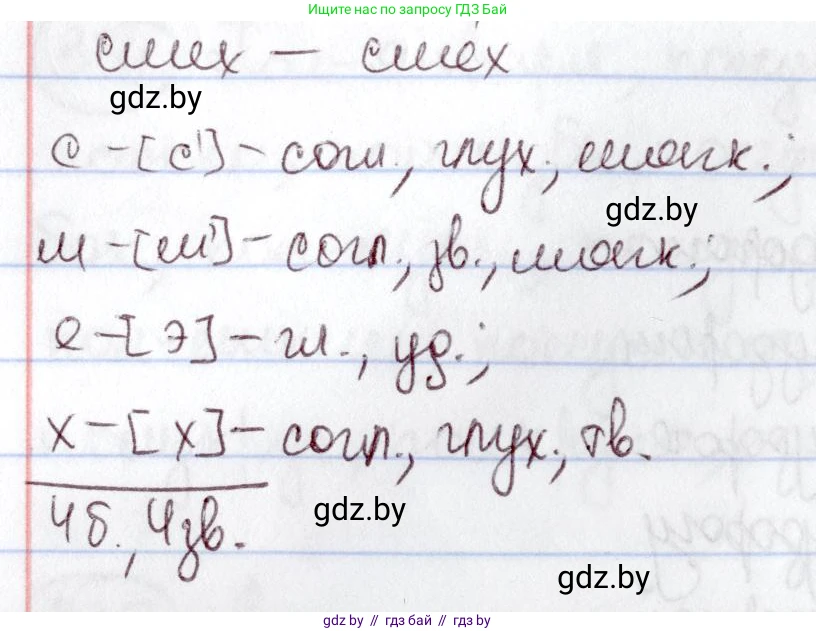 Ищите нас по запросу ГДЗ Бай
смех – сме́х
gdz.by
с – [с'] – согл., глух., мягк.;
gdz.by
м – [м'] – согл., зв., мягк.;
е – [э] – гл., уд.;
х – [х] – согл., глух., тв.
gdz.by
4 б., 4 зв.
gdz.by
gdz.by // гдз бай // gdz.by